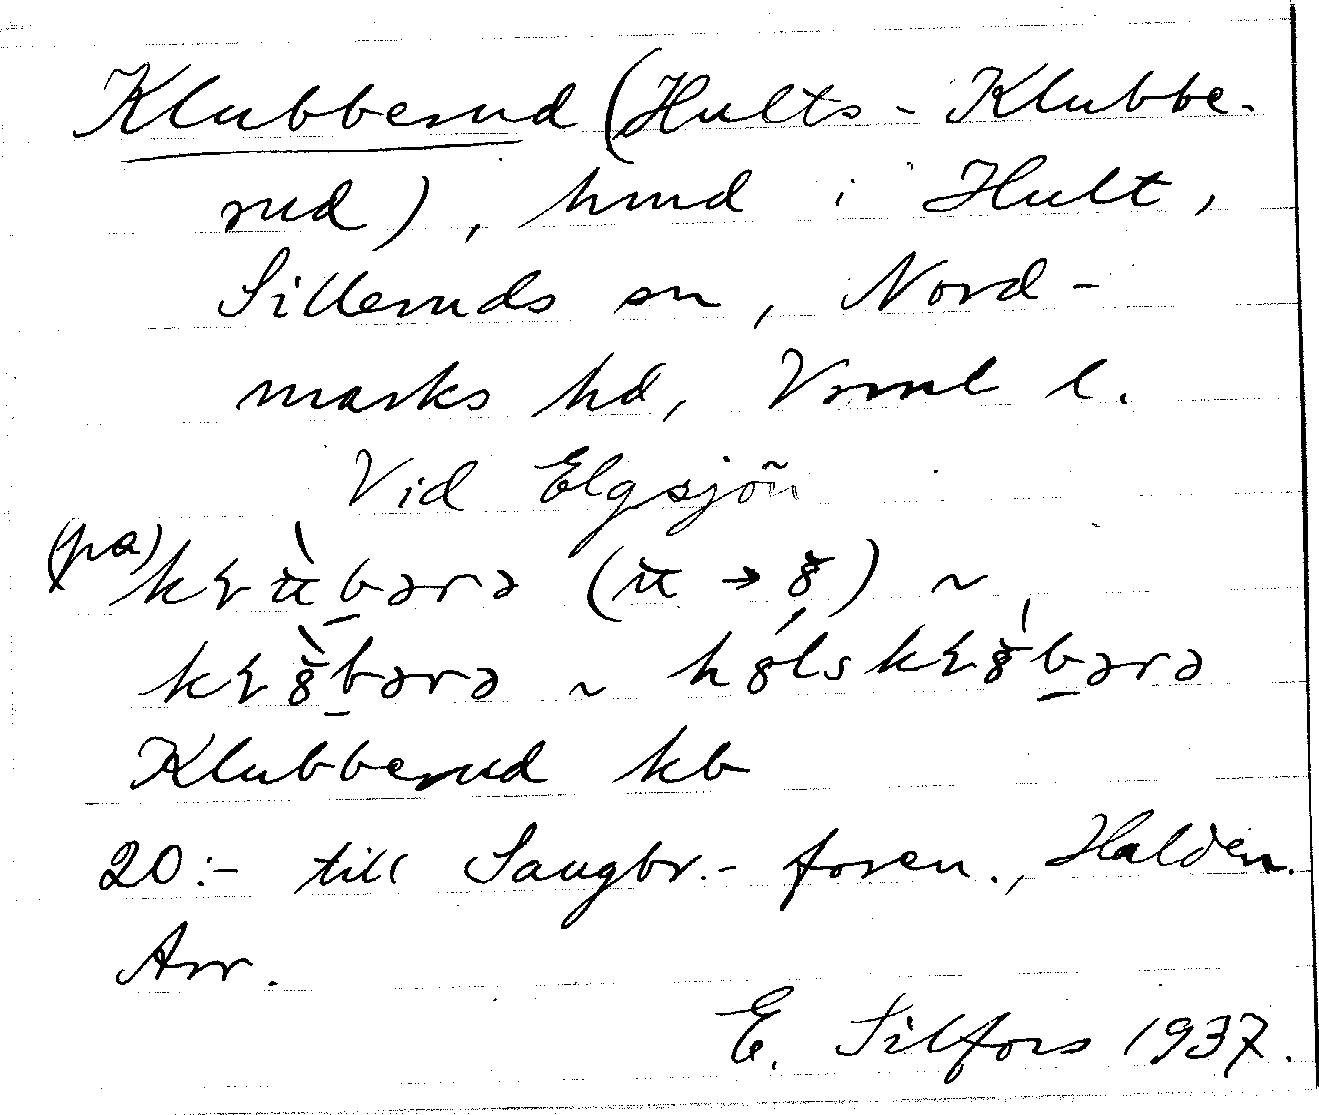 Klubberud (Hults-Klubbe-
rud), hmd i Hult,
Silleruds sn, Nord-
marks hd, Vrml l.
Vid Elgsjön
(på)
Klubberud kb
20:- till Saugbr.-foren., Halden.
Arr.
E. Silfors 1937.